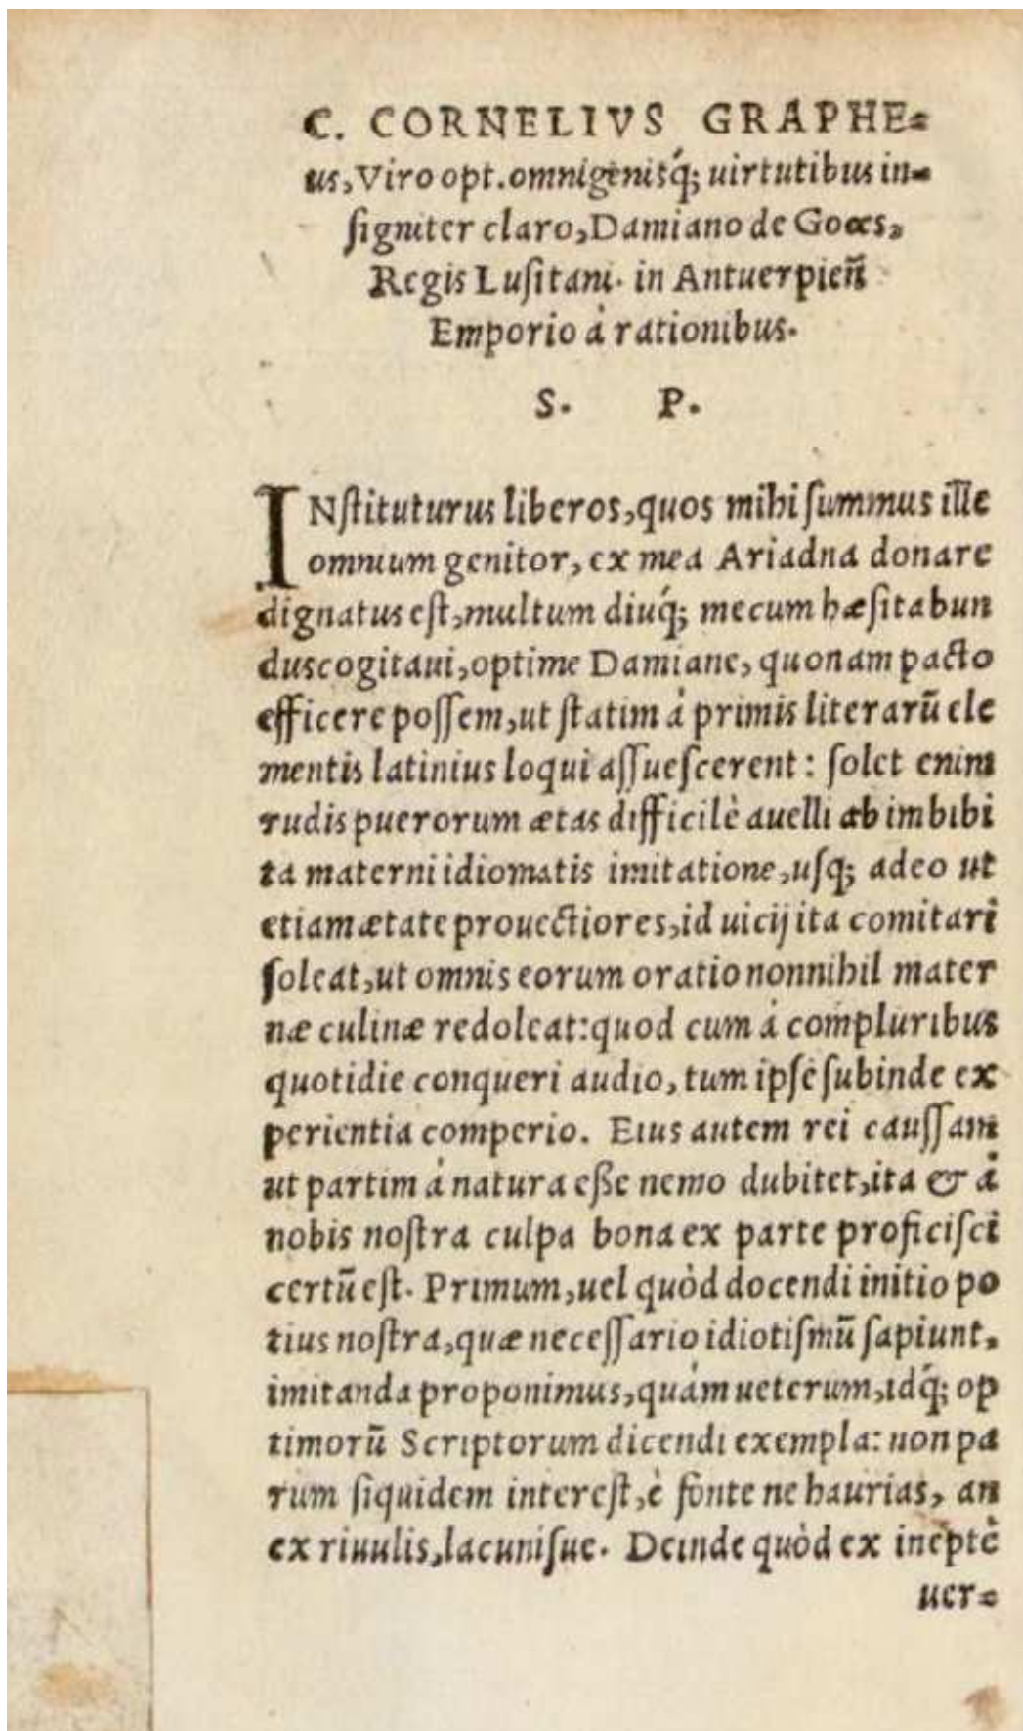 C. CORNELIVS GRAPHE=
us, Viro opt. omnigenisq́; uirtutibus in=
ſigniter claro, Damiano de Goes,
Regis Luſitani. in Antuerpieñ
Emporio à rationibus.
S. P.
INſtituturus liberos, quos mihi ſummus ille
omnium genitor, ex mea Ariadna donare
dignatus eſt, multum diuq́; mecum hæſitabun
dus cogitaui, optime Damiane, quonam pacto
efficere poſſem, ut ſtatim à primis literarū ele
mentis latinius loqui aſſueſcerent: ſolet enim
rudis puerorum ætas difficilè auelli ab imbibi
ta materni idiomatis imitatione, uſq; adeo ut
etiam ætate prouectiores, id uicij ita comitari
ſoleat, ut omnis eorum oratio nonnihil mater
næ culinæ redoleat: quod cum à compluribus
quotidie conqueri audio, tum ipſe ſubinde ex
perientia comperio. Eius autem rei cauſſam
ut partim à natura eſße nemo dubitet, ita & à
nobis noſtra culpa bona ex parte proficiſci
certū eſt. Primum, uel quòd docendi initio po
tius noſtra, quæ neceſſario idiotiſmū ſapiunt,
imitanda proponimus, quàm ueterum, idq́; op
timorū Scriptorum dicendi exempla: non pa
rum ſiquidem intereſt, è fonte ne haurias, an
ex riuulis, lacuniſue. Deinde quòd ex ineptè
uer=